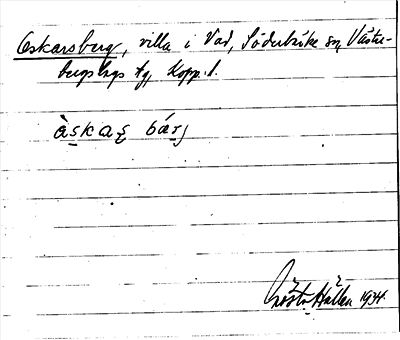 Oskarsberg, villa i Vad, Söderbärke sn, Väster-
bergslags tg, Kopp. l.
àskaʂ bárj
Gösta Hållen 1934.